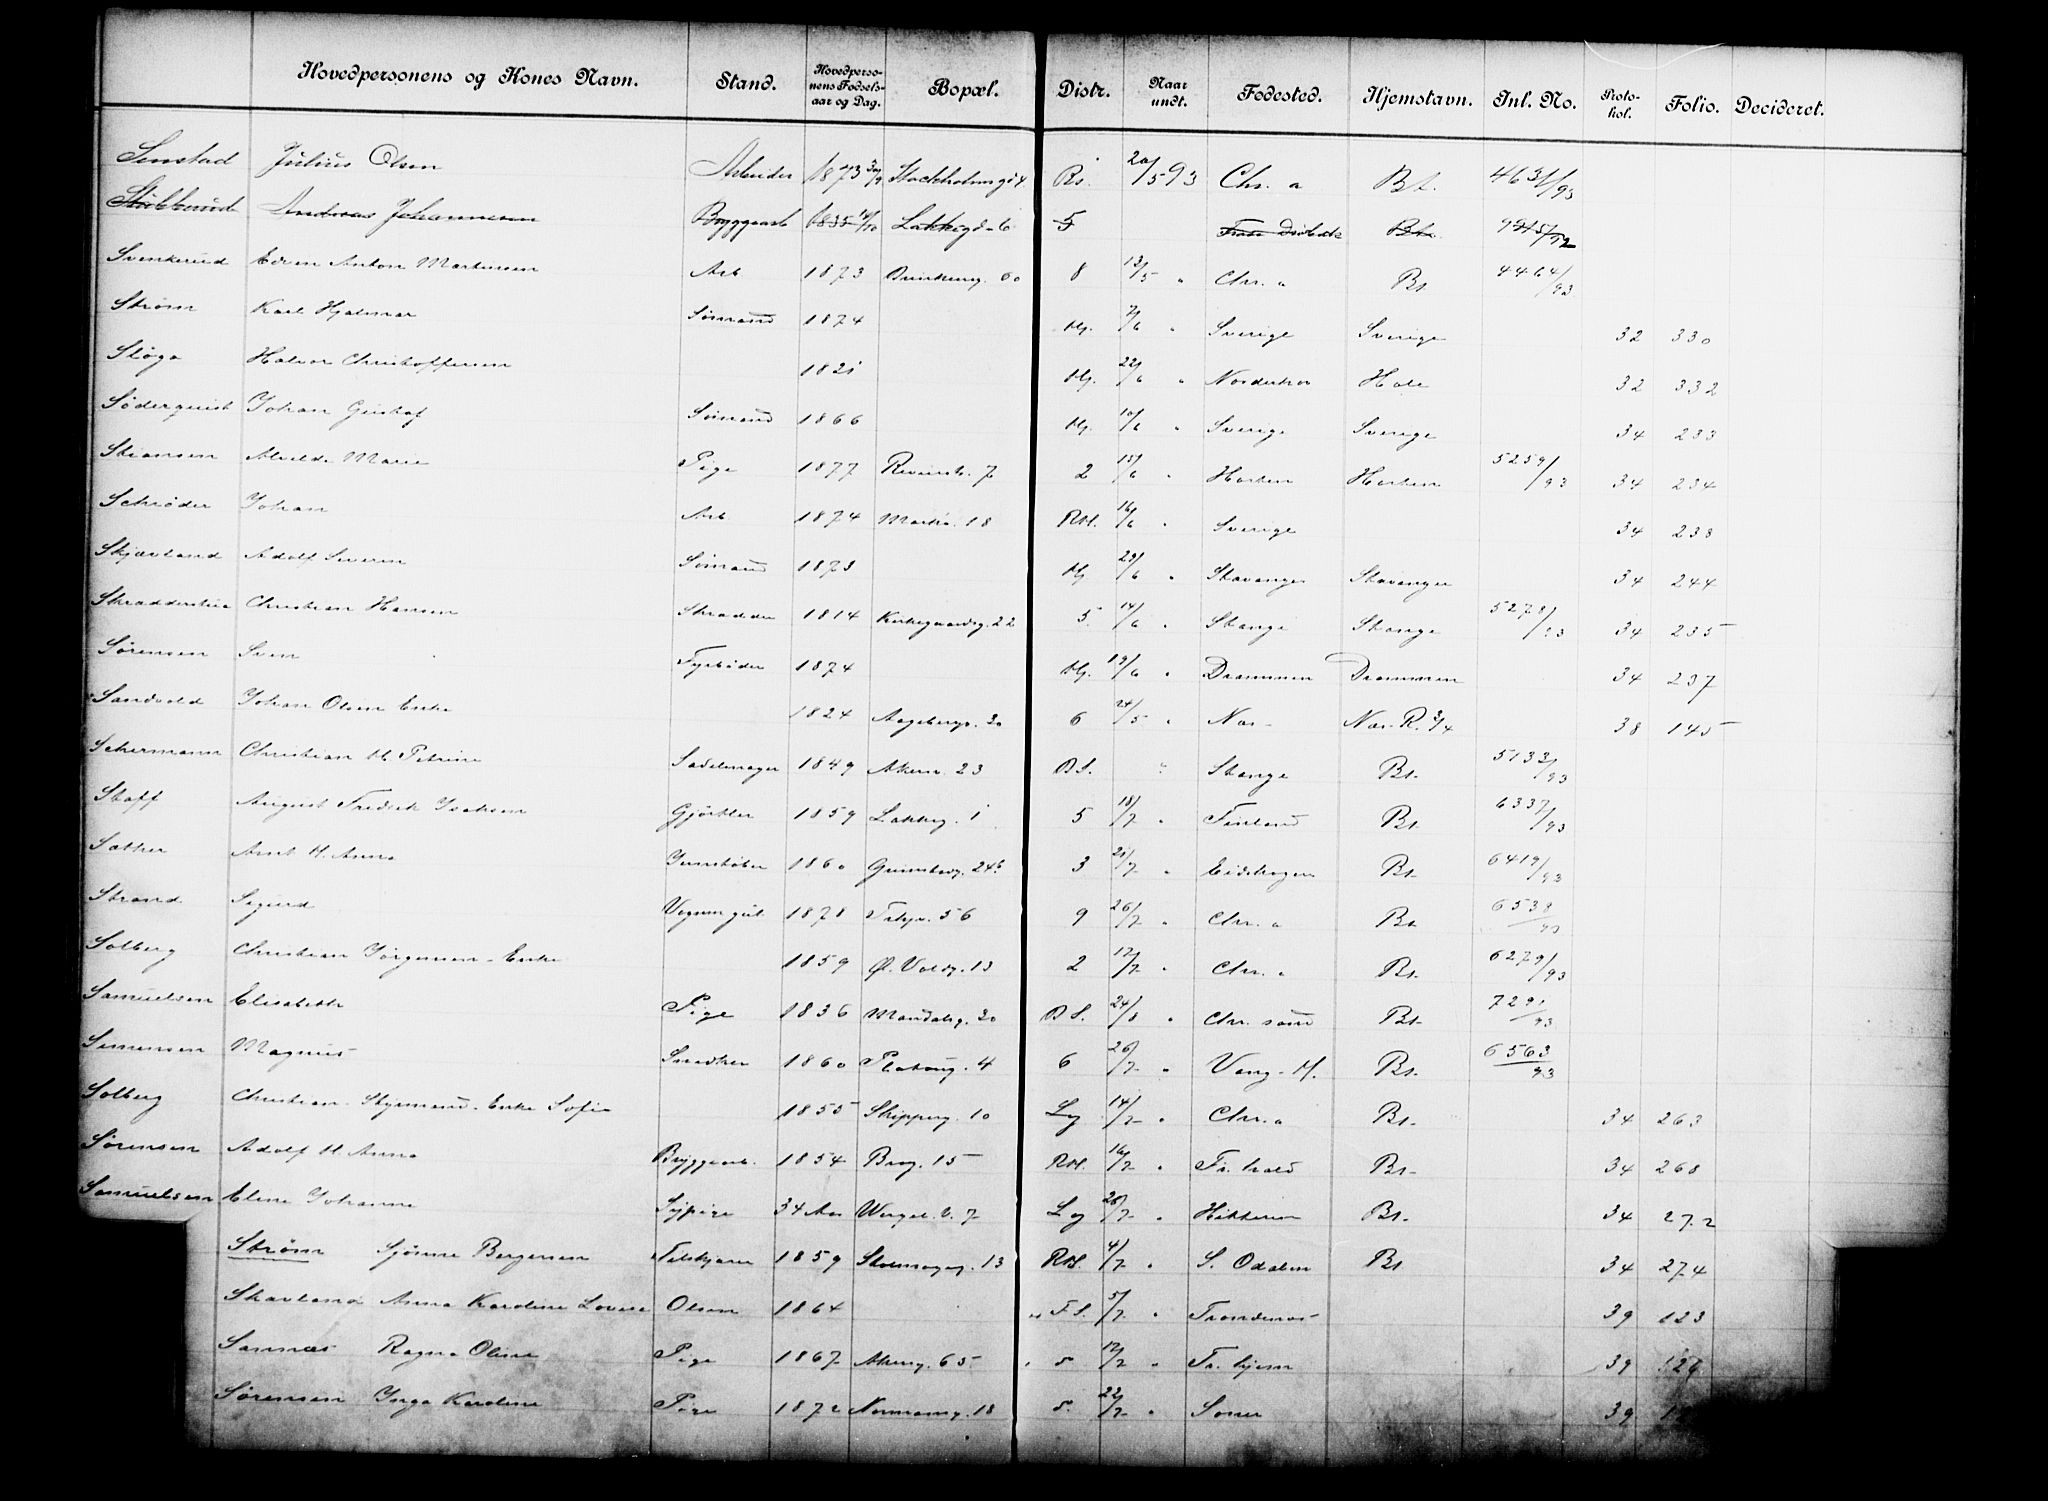 Hovedpersonens og Kones Navn. Stand. Hovedpersonens Fødselsaar og Dag. Bopæl. Distr. Naar undt. Fødested. Hjemstavn. Inl. No. Protokol. Folio. Decideret.
Senstad Julius Olsen Arbeider 1873 Stockholmsgd 4 Rs. 20/5 93 Chr. a Bt. 4631/93
Andreas Johannesen Bryggearb 1835 Lakkegd 6 5 Bt.
Svenkerud Edvin Anton Martinsen Arb 1873 60 8 12/5 " Chr. a Bt. 4464/93
Strøm Karl Hjalmar Sømand 1874 Hj. 7/6 " Sverige Sverige 32 330
Sløga Halvor Christoffersen 1821 Hj. 22/6 " Norderhov Hole 32 332
Söderquist Johan Gustaf Sømand 1866 Hj. 10/6 " Sverige Sverige 34 233
Stiansen Alvilde Marie Pige 1877 Revierst. 7 2 15/6 " Horten Horten 5259/93 34 234
Schrøder Johan Arb 1874 18 RH. 16/6 " Sverige 34 238
Skjævland Adolf Severin Sømand 1873 Hj 23/6 " Stavanger Stavanger 34 244
Christian Hansen Skrædder 1814 Kirkegaardsg. 22 5. 14/6 " Stange Stange 5278/93 34 235
Sørensen Sven Fyrbøder 1874 Hj. 19/6 " Drammen Drammen 34 237
Sandvold Johan Olsen Enke 1824 Aagebergv. 30 6 24/5 " Nes Nes R. 3/4 38 145
Schermann Christian H. Petrine Sadelmager 1849 Akersv. 23 BS. " Stange Bt. 5133/93
Staff August Fredrik Isaksen Gjørtler 1859 Lakkeg. 1 5 18/7 " Finland Bt. 6337/93
Sæther Arnt H. Anna Jernstøber 1860 24b 3 21/7 " Eidskogen Bt. 6419/93
Strand Sigurd 1878 56 9 26/7 " Chr. a Bt. 6538/93
Solberg Christian Jørgensen. Enke 1859 Ø. Voldg. 13 2 17/7 " Chr. a Bt. 6279/93
Samuelsen Elisabeth Pige 1836 Mandalsg. 30 BS. 24/8 " Chr. sand Bt. 93
Simensen Magnus Snedker 1860 Platoug. 4 6 26/7 " Vang. H. Bt. 6563/93
Solberg Christian. Styrmand. Enke Sofie 1855 Skipperg. 10 Lg 14/7 " Chr. a Bt. 34 263
Sørensen Adolf H. Anna Bryggearb. 1854 Brog. 15 RH. 16/7 " Fr. hald Bt. 34 268
Samuelsen Eline Johanne Sypige 34 Aar Wergel. V. 7 Lg 28/7 " Hitteren Bt. 34 272
Strøm Sjønne Bergersen Feltskjærer 1859 13 RH. 4/7 " S. Odalen Bt 34 274
Skavland Anna Karoline Lovise Olsen 1864 FS. 5/7 " Trondenes 39 123
Sannæs Ragna Oline Pige 1867 Akersg. 65 5 12/7 " Tr. hjem 39
Sørensen Inga Karoline Pige 1872 Normannsg. 18 5. 22/7 " Soner 39